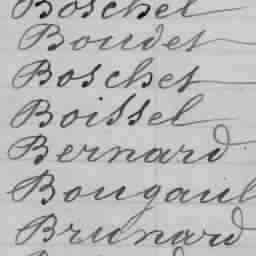 Boschet
Boudet
Boschet
Boissel
Bernard
Bougaul
Brunard